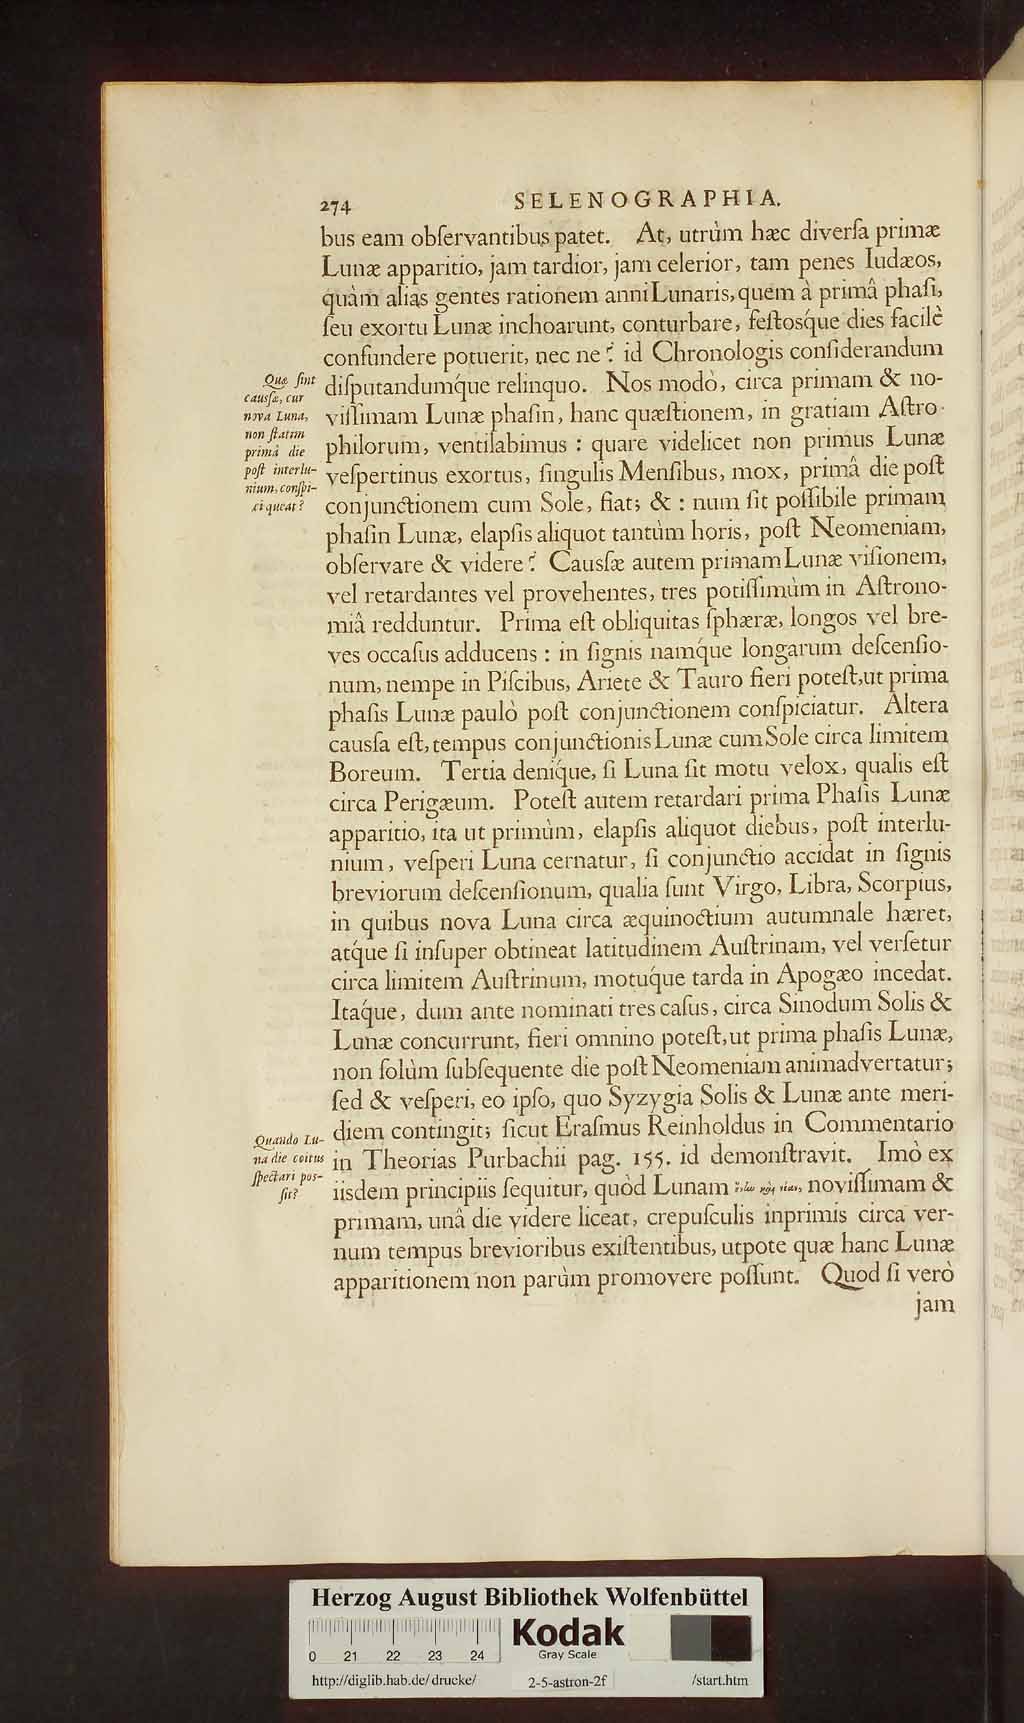 274 SELENOGRAPHIA.
bus eam obſervantibus patet. At, utrùm hæc diverſa primæ
Lunæ apparitio, jam tardior, jam celerior, tam penes Iudæos,
quàm alias gentes rationem anni Lunaris, quem à primâ phaſi,
ſeu exortu Lunæ inchoarunt, conturbare, feſtosq́ue dies facilè
confundere potuerit, nec ne? id Chronologis conſiderandum
diſputandumq́ue relinquo. Nos modò, circa primam & no-
viſſimam Lunæ phaſin, hanc quæſtionem, in gratiam Aſtro-
philorum, ventilabimus : quare videlicet non primus Lunæ
veſpertinus exortus, ſingulis Menſibus, mox, primâ die poſt
conjunctionem cum Sole, fiat; & : num ſit poſſibile primam
phaſin Lunæ, elapſis aliquot tantùm horis, poſt Neomeniam,
obſervare & videre? Cauſſæ autem primam Lunæ viſionem,
vel retardantes vel provehentes, tres potiſſimùm in Aſtrono-
miâ redduntur. Prima eſt obliquitas ſphæræ, longos vel bre-
ves occaſus adducens : in ſignis namq́ue longarum deſcenſio-
num, nempe in Piſcibus, Ariete & Tauro fieri poteſt, ut prima
phaſis Lunæ paulò poſt conjunctionem conſpiciatur. Altera
cauſſa eſt, tempus conjunctionis Lunæ cum Sole circa limitem
Boreum. Tertia deniq́ue, ſi Luna ſit motu velox, qualis eſt
circa Perigæum. Poteſt autem retardari prima Phaſis Lunæ
apparitio, ita ut primùm, elapſis aliquot diebus, poſt interlu-
nium, veſperi Luna cernatur, ſi conjunctio accidat in ſignis
breviorum deſcenſionum, qualia ſunt Virgo, Libra, Scorpius,
in quibus nova Luna circa æquinoctium autumnale hæret,
atq́ue ſi inſuper obtineat latitudinem Auſtrinam, vel verſetur
circa limitem Auſtrinum, motuq́ue tarda in Apogæo incedat.
Itaq́ue, dum ante nominati tres caſus, circa Sinodum Solis &
Lunæ concurrunt, fieri omnino poteſt, ut prima phaſis Lunæ,
non ſolùm ſubſequente die poſt Neomeniam animadvertatur;
ſed & veſperi, eo ipſo, quo Syzygia Solis & Lunæ ante meri-
diem contingit; ſicut Eraſmus Reinholdus in Commentario
in Theorias Purbachii pag. 155. id demonſtravit. Imò ex
iisdem principiis ſequitur, quòd Lunam noviſſimam &
primam, unâ die videre liceat, crepuſculis inprimis circa ver-
num tempus brevioribus exiſtentibus, utpote quæ hanc Lunæ
apparitionem non parùm promovere poſſunt. Quod ſi verò
jam
Quæ ſint
cauſſæ, cur
nova Luna,
non ſtatim
primâ die
poſt interlu-
nium, conſpi-
ci queat?
Quando Lu-
na die coitus
ſpectari poſ-
ſit?
Herzog August Bibliothek Wolfenbüttel
0 21 22 23 24
Kodak
Gray Scale
http://diglib.hab.de/drucke/ 2-5-astron-2f /start.htm